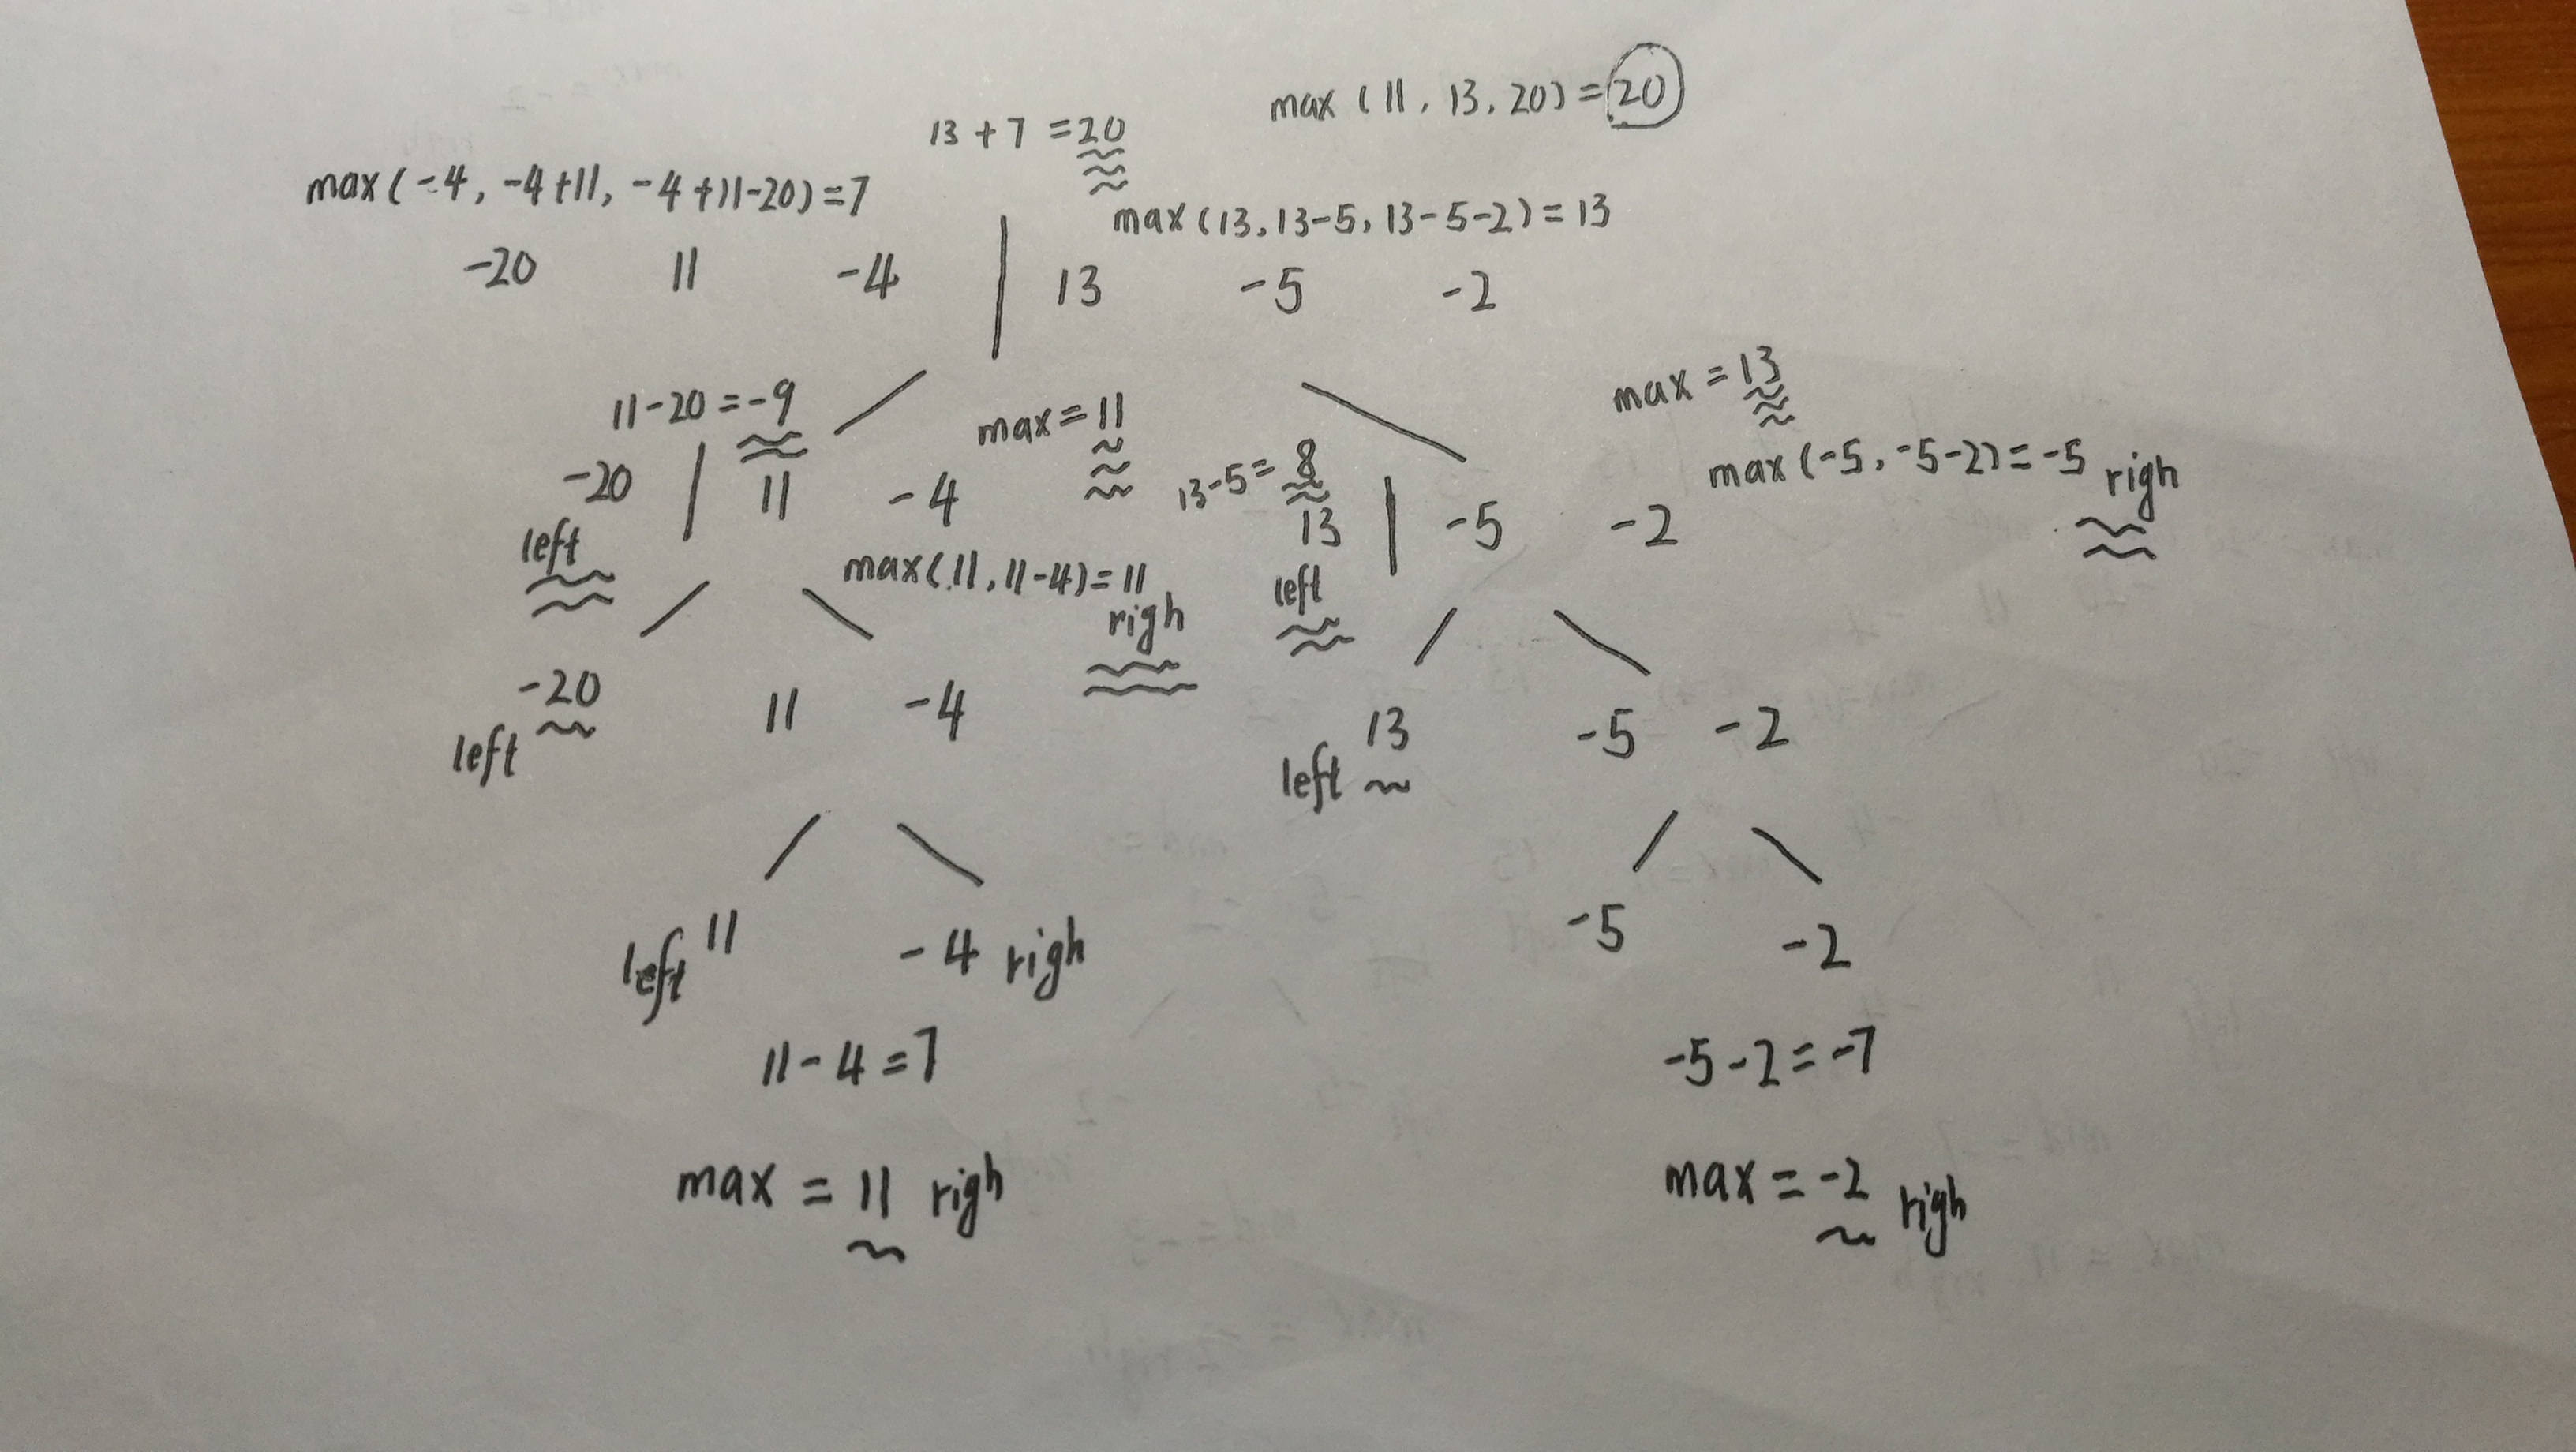 max (11, 13, 20) = 20
13 + 7 = 20
max (-4, -4+11, -4+11-20) = 7
max (13, 13-5, 13-5-2) = 13
-20 11 -4 | 13 -5 -2
11-20 = -9
max = 11
max = 13
13-5 = 8
max (-5, -5-2) = -5 righ
-20 | 11 -4
13 | -5 -2
left
max (11, 11-4) = 11
righ
left
-20
left
11 -4
13
left
-5 -2
left 11
-4 righ
-5
-2
11-4 = 7
-5-2 = -7
max = 11 righ
max = -2 righ